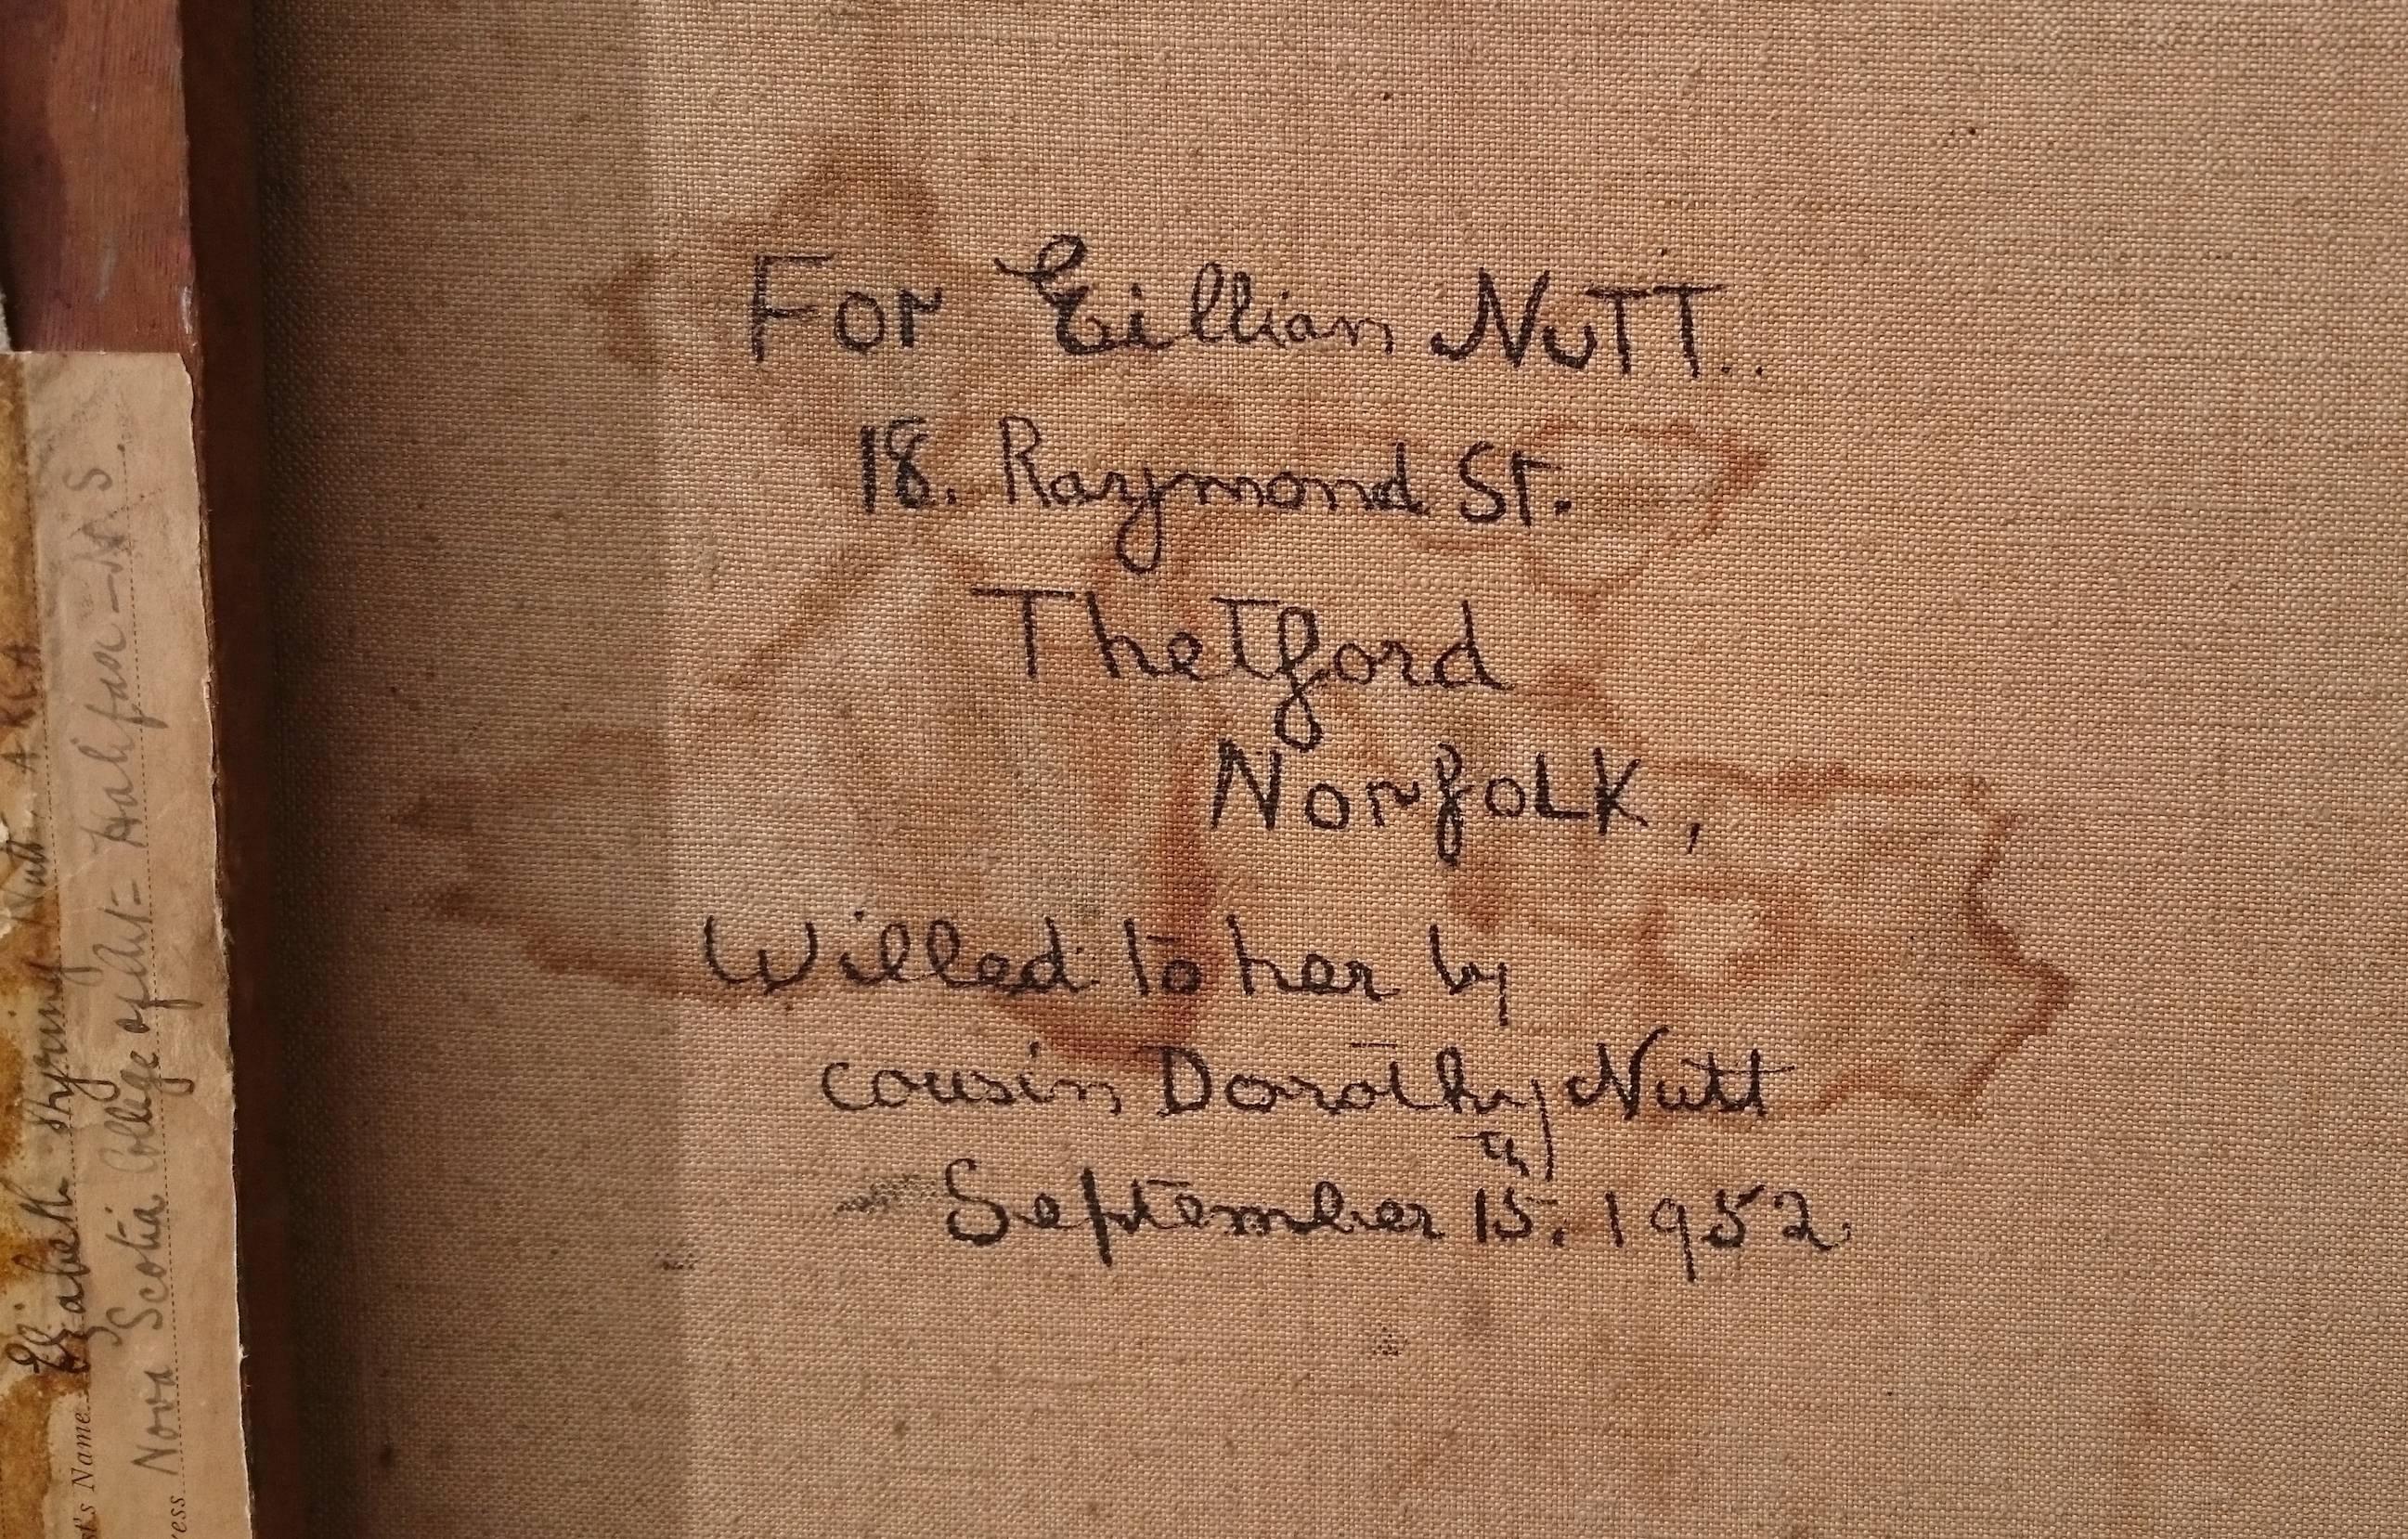 For Gillian NuTT..
18. Raymond St.
Thetford
Norfolk,
Willed to her by
cousin Dorothy Nutt
September 15th. 1952.
st's Name Elizabeth Styring Nutt. A RCA
ress Nova Scotia College of Art = Halifax - N S.